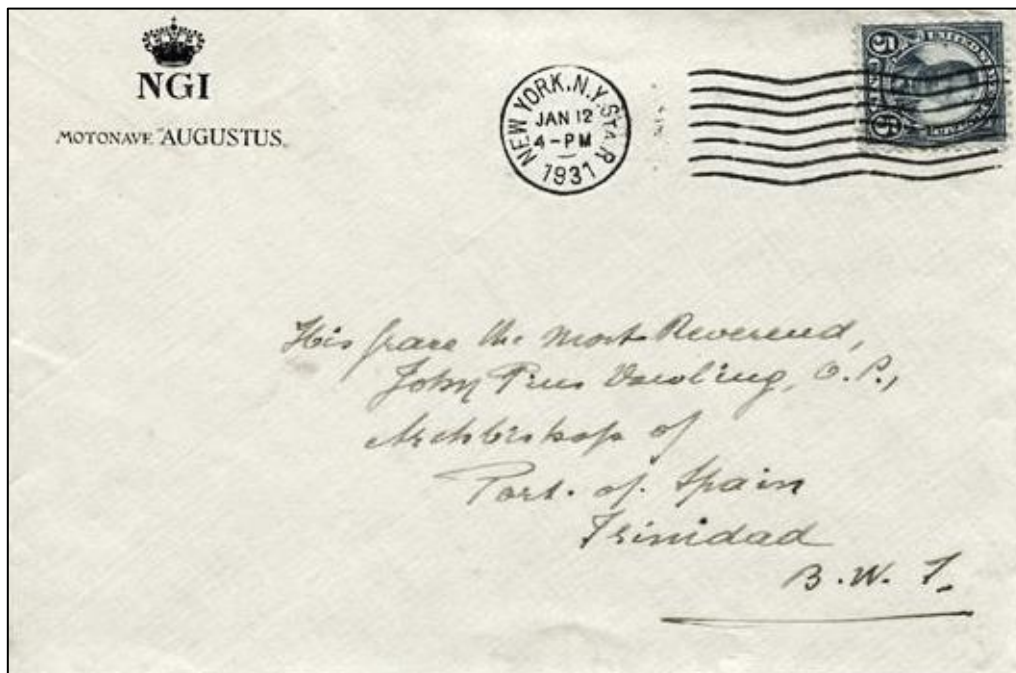 NGI
MOTONAVE "AUGUSTUS"
NEW YORK, N.Y. STA. R
JAN 12
4-PM
1931
UNITED STATES
5 5
His Grace the Most Reverend,
John Pius Dowling, O.P.,
Archbishop of
Port. of. Spain
Trinidad
B. W. I.